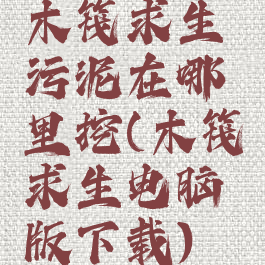 木筏求生
污泥在哪
里挖(木筏
求生电脑
版下载)